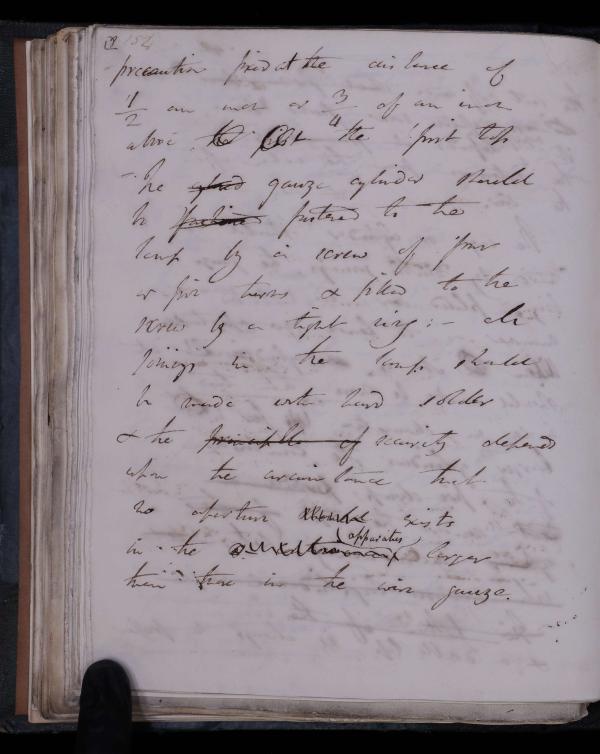 152
precaution fixed at the distance of
1/2 an inch or 3/4 of an inch
above the first the first top
- The gauze cylinder should
be fastened to the
lamp by a screw of four
or five turns & fitted to the
screw by a tight ring :- All
joinings in the lamp should
be made with hard solder
& the principle of security depends
upon the circumstance that
no aperture should exists
apparatus
in the larger
than those in the wire gauze.